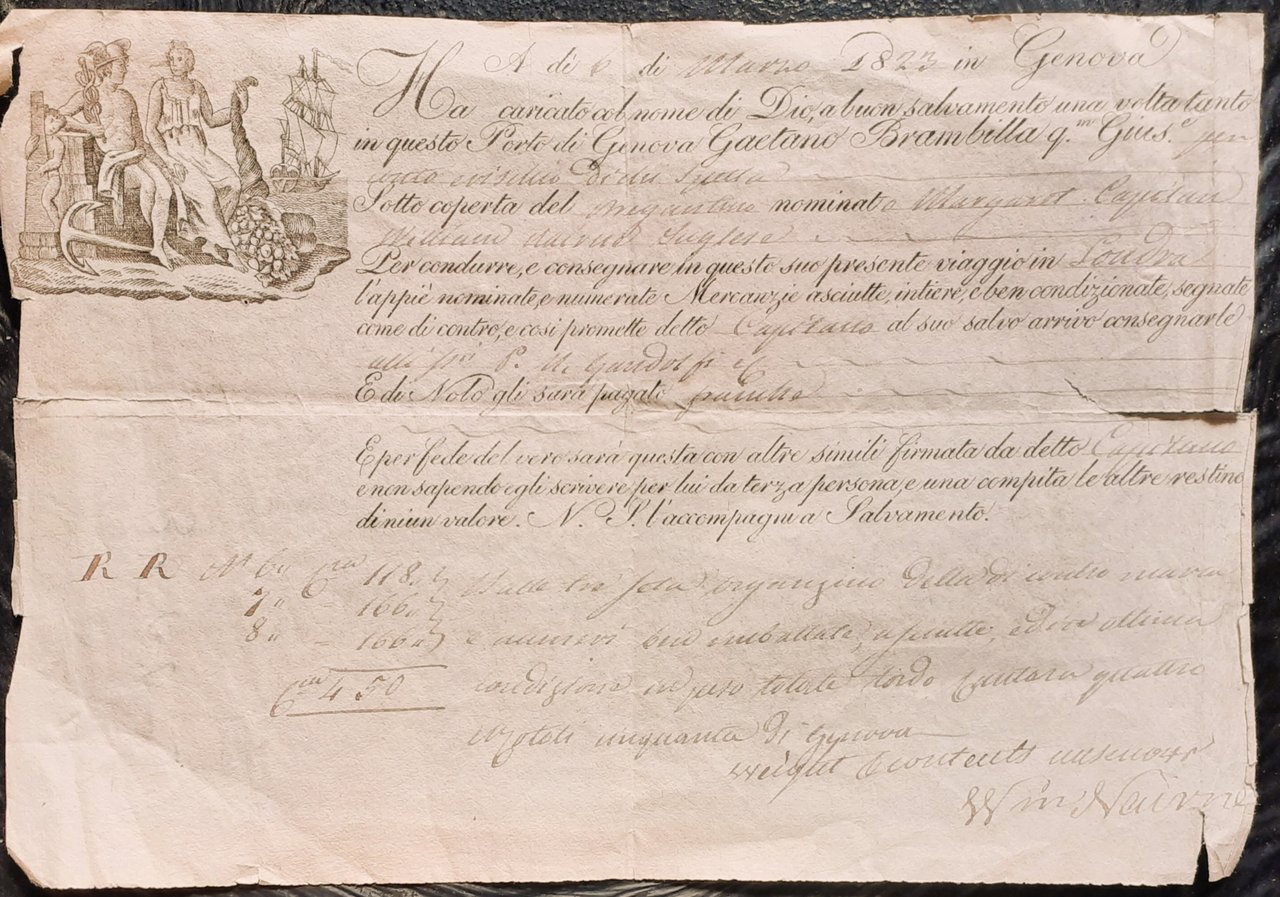 A di 6 di Marzo 1823 in Genova
Ha caricato col nome di Dio, a buon salvamento una volta tanto
in questo Porto di Genova Gaetano Brambilla q.m Gius.e per
conto rischio di chi spetta
Sotto coperta del brigantino nominato Margaret Capitan
William Nairne Inglese
Per condurre, e consegnare in questo suo presente viaggio in Londra
l'appiè nominate, e numerate Mercanzie asciutte, intiere, e ben condizionate, segnate
come di contro, e così promette detto Capitano al suo salvo arrivo consegnarle
alli P. Gandolfi
E di Nolo gli sarà pagato
E per fede del vero sarà questa con altre simili firmata da detto Capitano
e non sapendo egli scrivere per lui da terza persona, e una compita le altre restino
di niun valore. N. S. l'accompagni a Salvamento.
R R N° 6 118 Balle tre seta organzino della di contro marca
7 " – 166 "
8 " – 166 " e numeri ben imballate, asciutte, ed in ottima
450 condizione in peso totale lordo Cantara quattro
Rotoli cinquanta di Genova
weight & contents unknown
Wm Nairne